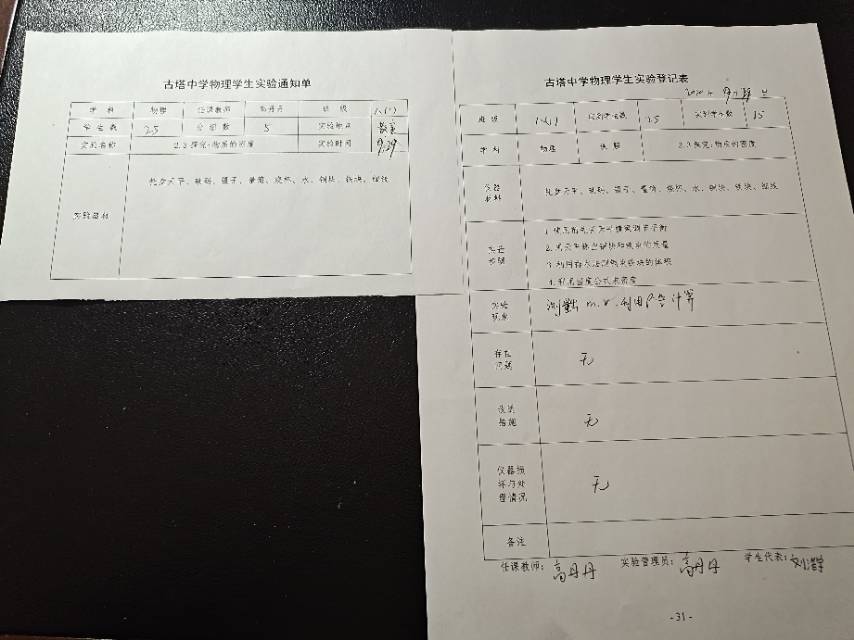 古塔中学物理学生实验通知单
学科 物理 任课教师 高丹丹 班级 八(1)
学生数 25 分组数 5 实验地点 教室
实验名称 2.3探究:物质的密度 实验时间 9.29
实验器材 托盘天平、砝码、镊子、量筒、烧杯、水、铜块、铁块、细线
古塔中学物理学生实验登记表
班级 八(1) 应到学生数 25 实到学生数 25
学科 物理 课题 2.3探究:物质的密度
仪器
材料
托盘天平、砝码、镊子、量筒、烧杯、水、铜块、铁块、细线
2.用天平称出铜块和铁块的质量
3.利用排水法测铁块铜块的体积
4.利用密度公式求密度
实验
现象
测量出 m、V,利用
计算
存在
问题
无
改进
措施
无
仪器损
坏与处
理情况
无
备注
任课教师: 高丹丹 实验管理员: 高丹丹 学生代表:
-31-